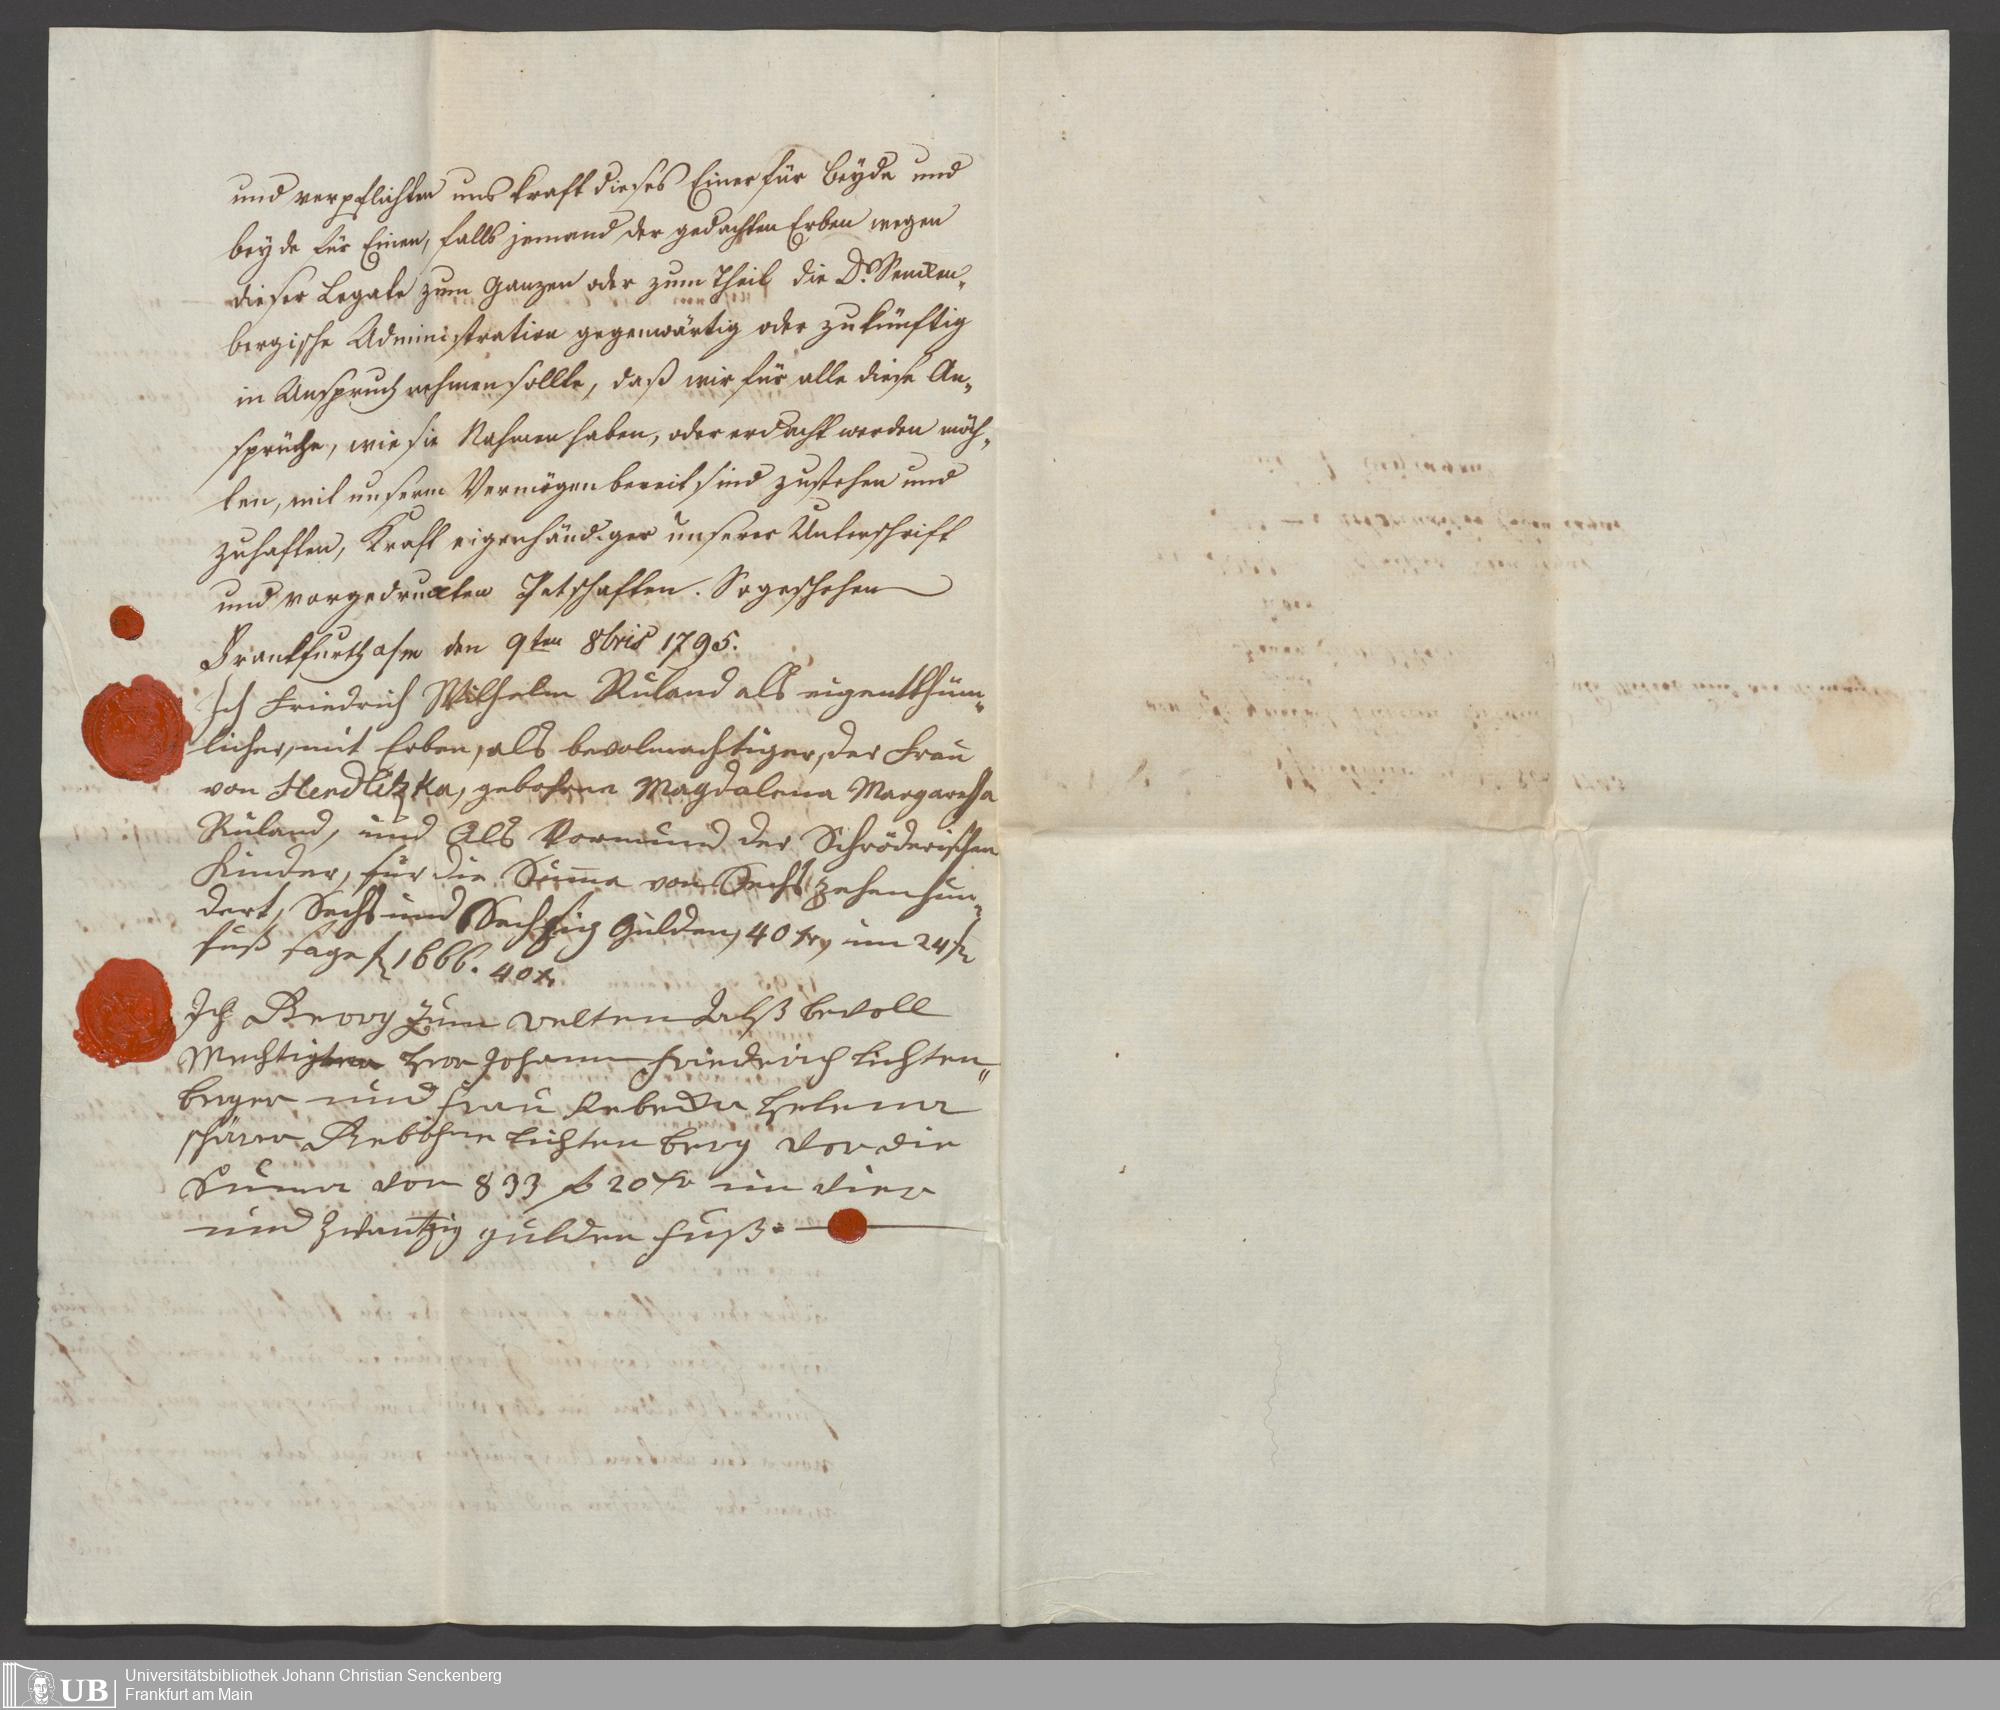 und verpflichten uns kraft dieses Einer für beyde und
beyde für Einen, falls jemand der gedachten Erben wegen
dieser Legate zum Ganzen oder zum Theil die D. Sencken„
bergische Administration gegenwärtig oder zukünftig
in Anspruch nehmen sollte, daß wir für alle diese An„
sprüche, wie sie Nahmen haben, oder erdacht werden möch„
ten, mit unserm Vermögen bereit sind zu stehen und
zuhaften, Kraft eigenhändiger unserer Unterschrift
und vorgedruckten Petschaften. So geschehen
Franckfurth a/m den 9ten 8bris 1795.
Ich Friedrich Wilhelm Ruland als eigenthüm„
licher, mit Erben, als bevolmachtiger, der Frau
von Hendlitzka, gebohrne Magdalena Margaretha
Ruland, und als Vormund der Schröderischen
Kinder, für die Suma von Sechszehenhun„
dert, Sechs und Sechszig Gulden, 40 xr, im 24 fl
fuß sage fl 1666. 40 xr
Ich Georg Zum velten Alß bevoll
Mechtigter Herr Johann Friedrich Lichten„
berger und Frau Rebecka Helena
Gebohrne Lichtenberg vor die
Suma von 833 fl 20 xr im vier
und zwantzig gulden Fuß.
Universitätsbibliothek Johann Christian Senckenberg
Frankfurt am Main
UB